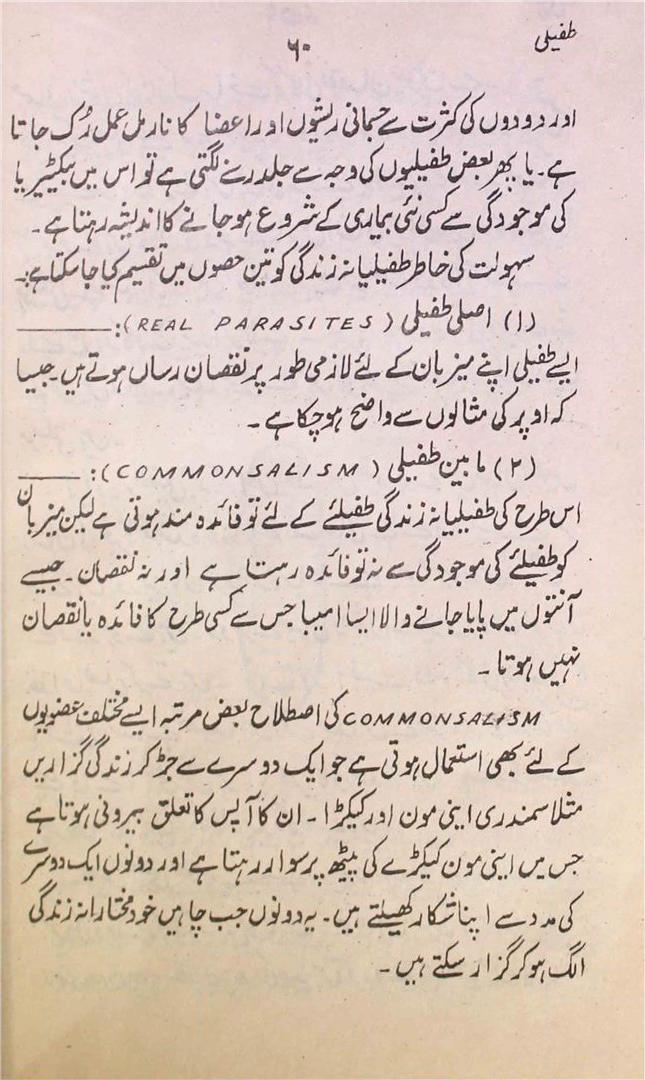 طفیلی
۶۰
اور دودوں کی کثرت سے جسمانی ریشوں اور اعضا کا نارمل عمل رُک جاتا
ہے۔ یا پھر بعض طفیلیوں کی وجہ سے جلد رسنے لگتی ہے تو اس میں بیکٹیریا
کی موجودگی سے کسی نئی بیماری کے شروع ہو جانے کا اندیشہ رہتا ہے۔
سہولت کی خاطر طفیلیانہ زندگی کو تین حصوں میں تقسیم کیا جا سکتا ہے:۔
(۱) اصلی طفیلی (REAL PARASITES):
ایسے طفیلی اپنے میزبان کے لئے لازمی طور پر نقصان رساں ہوتے ہیں۔ جیسا
کہ اوپر کی مثالوں سے واضح ہو چکا ہے۔
(۲) مابین طفیلی (COMMONSALISM):
اس طرح کی طفیلیانہ زندگی طفیلئے کے لئے تو فائدہ مند ہوتی ہے لیکن میزبان
کو طفیلئے کی موجودگی سے نہ تو فائدہ رہتا ہے اور نہ نقصان۔ جیسے
آنتوں میں پایا جانے والا ایسا امیبا جس سے کسی طرح کا فائدہ یا نقصان
نہیں ہوتا۔
COMMONSALISM کی اصطلاح بعض مرتبہ ایسے مختلف عضویوں
کے لئے بھی استعمال ہوتی ہے جو ایک دوسرے سے جڑ کر زندگی گزاریں
مثلا سمندری اینی مون اور کیکڑا۔ ان کا آپس کا تعلق بیرونی ہوتا ہے
جس میں اینی مون کیکڑے کی پیٹھ پر سوار رہتا ہے اور دونوں ایک دوسرے
کی مدد سے اپنا شکار کھیلتے ہیں۔ یہ دونوں جب چاہیں خود مختارانہ زندگی
الگ ہو کر گزار سکتے ہیں۔